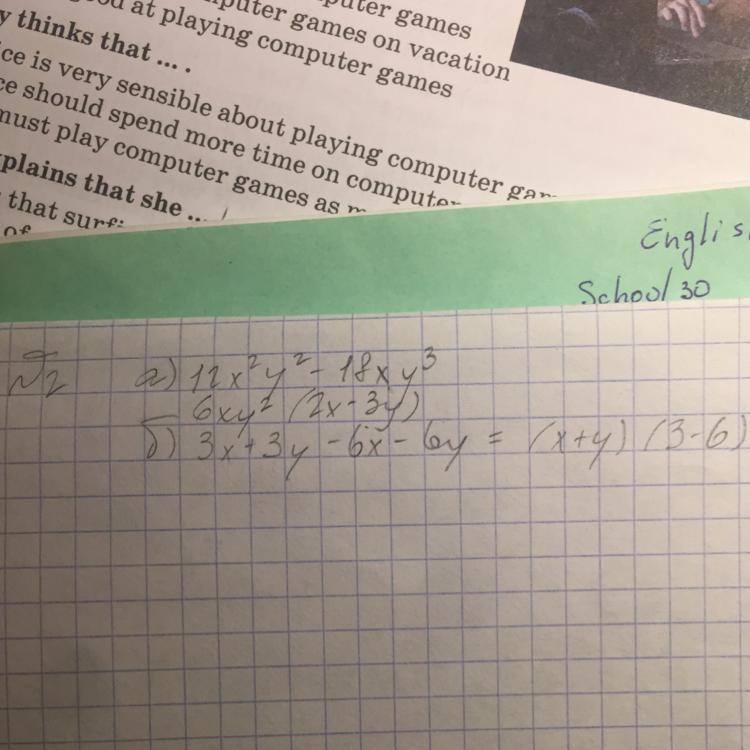 puter games
good at playing computer games on vacation
computer games
y thinks that ... .
ice is very sensible about playing computer gam
ce should spend more time on computer
must play computer games as m
xplains that she ...
that surfi
of
English
School 30
№2 а) 12x²y² - 18xy³
6xy² (2x-3y)
б) 3x+3y - 6x - 6y = (x+y) (3-6)